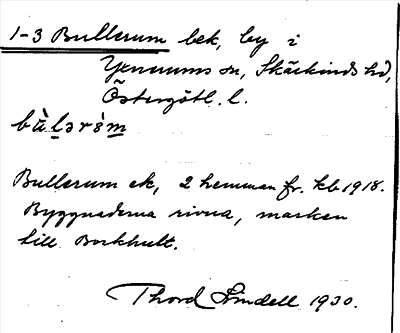 1-3 Bullerum bek, by i
Yxnerums sn, Skärkinds hd,
Östergötl. l.
bù̀lərə̀m
Bullerum ek, 2 hemman fr. kb 1918.
Byggnaderna rivna, marken
till Borkhult.
Thord Lindell 1930.